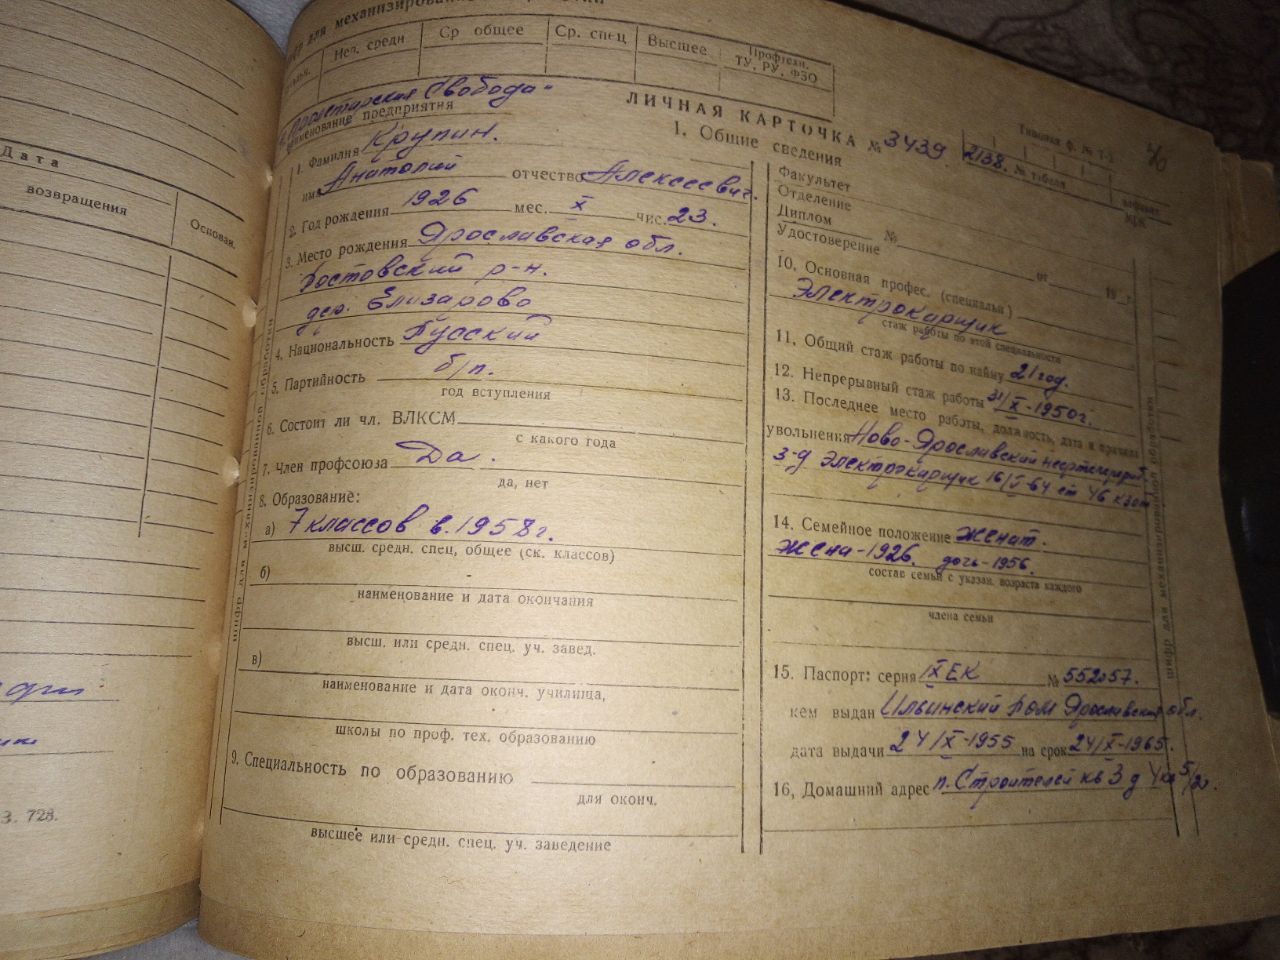 для механизированной
Неп. средн
Ср общее
Ср. спец
Высшее
Профтехн.
ТУ, РУ, ФЗО
"Пролетарская Свобода"
наименование предприятия
ЛИЧНАЯ КАРТОЧКА № 3439
2138. № табеля
Типовая ф. № Т-2
алфавит
1. Общие сведения
1. Фамилия Крупин.
имя Анатолий отчество Алексеевич.
2. Год рождения 1926 мес. X чис. 23.
3. Место рождения Ярославская обл.
Ростовский р-н.
дер. Елизарово
4. Национальность Русский
5. Партийность б/п.
год вступления
6. Состоит ли чл. ВЛКСМ
с какого года
7. Член профсоюза Да.
да, нет
8. Образование:
а) 7 классов в 1958 г.
высш. средн. спец, общее (ск. классов)
б)
наименование и дата окончания
высш. или средн. спец. уч. завед.
в)
наименование и дата оконч. училища,
школы по проф. тех. образованию
9. Специальность по образованию
для оконч.
высшее или средн. спец. уч. заведение
Факультет
Отделение
Диплом №
Удостоверение от 19 г.
10. Основная профес. (специальн)
Электрокарщик
стаж работы по этой специальности
11. Общий стаж работы по найму 21 год.
12. Непрерывный стаж работы 31/X-1950г.
13. Последнее место работы, должность, дата и причина
увольнения Ново-Ярославский нефтеперераб.
з-д электрокарщик 16/X-64 ст 46 кзот
14. Семейное положение женат.
жена-1926. дочь-1956.
состав семьи с указан. возраста каждого
члена семьи
15. Паспорт: серия IX ЕК № 552057.
кем выдан Ильинский Ром Ярославская обл.
дата выдачи 24/X-1955 на срок 24/X-1965.
16, Домашний адрес п. Строителей кв 3 д 4 кв 5/20.
шифр для механизированной обработки
шифр для механизированной обработки
Дата
возвращения
Основан.
З. 728.